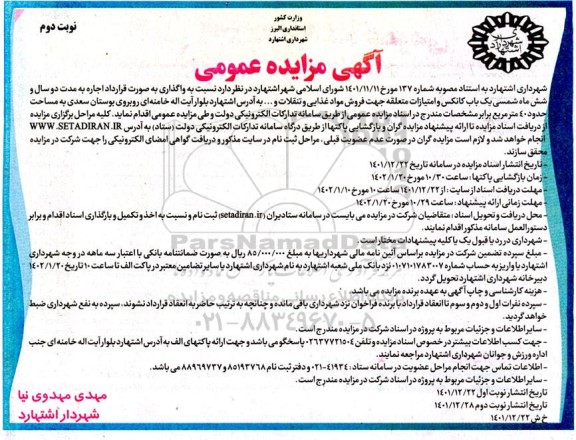 وزارت کشور
استانداری البرز
شهرداری اشتهارد
نوبت دوم
آگهی مزایده عمومی
شهرداری اشتهارد به استناد مصوبه شماره ۱۳۷ مورخ ۱۴۰۱/۱۱/۱۱ شورای اسلامی شهر اشتهارد در نظر دارد نسبت به واگذاری به صورت قرارداد اجاره به مدت دو سال و
شش ماه شمسی یک باب کانکس و امتیازات متعلقه جهت فروش مواد غذایی و تنقلات و ... به آدرس اشتهارد بلوار آیت اله خامنه‌ای روبروی بوستان سعدی به مساحت
حدود ۴۰ متر مربع برابر مشخصات مندرج در اسناد مزایده عمومی از طریق سامانه تدارکات الکترونیکی دولت و طی مزایده عمومی اقدام نماید. کلیه مراحل برگزاری مزایده
از دریافت اسناد مزایده تا ارائه پیشنهاد مزایده گران و بازگشایی پاکتها از طریق درگاه سامانه تدارکات الکترونیکی دولت (ستاد) به آدرس WWW.SETADIRAN.IR
انجام خواهد شد و لازم است مزایده گران در صورت عدم عضویت قبلی ، مراحل ثبت نام در سایت مذکور و دریافت گواهی امضای الکترونیکی را جهت شرکت در مزایده
محقق سازند.
- تاریخ انتشار اسناد مزایده در سامانه تاریخ ۱۴۰۱/۱۲/۲۲
- زمان بازگشایی پاکتها : ساعت ۱۰/۳۰ مورخ ۱۴۰۲/۱/۲۰
- مهلت دریافت اسناد از سایت : از ۱۴۰۱/۱۲/۲۲ ساعت ۱۰ مورخ ۱۴۰۲/۱/۱۰
- مهلت زمانی ارائه پیشنهاد : ساعت ۱۰/۲۹ مورخ ۱۴۰۲/۱/۲۰
- محل دریافت و تحویل اسناد : متقاضیان شرکت در مزایده می بایست در سامانه ستادیران (setadiran.ir) ثبت نام و نسبت به اخذ و تکمیل و بارگذاری اسناد اقدام و برابر
دستورالعمل سامانه مذکور اقدام نمایند.
- شهرداری در رد یا قبول یک یا کلیه پیشنهادات مختار است
- مبلغ سپرده تضمین شرکت در مزایده براساس آئین نامه مالی شهرداریها به مبلغ ۸۵/۰۰۰/۰۰۰ ریال به صورت ضمانتنامه بانکی با اعتبار سه ماهه در وجه شهرداری
اشتهارد یا واریز به حساب شماره ۰۱۰۷۱۰۱۷۸۳۰۰۷ نزد بانک ملی شعبه اشتهارد به نام شهرداری اشتهارد یا سایر تضامین معتبر در پاکت الف تا ساعت ۱۰ تاریخ ۱۴۰۲/۱/۲۰
دبیرخانه شهرداری اشتهارد تحویل گردد.
- هزینه کارشناسی و چاپ آگهی به عهده برنده مزایده می باشد.
- سپرده نفرات اول و دوم و سوم تا انعقاد قرارداد با برنده فراخوان نزد شهرداری باقی مانده و چنانچه به ترتیب حاضر به انعقاد قرارداد نشوند ، سپرده به نفع شهرداری ضبط
خواهد گردید.
- سایر اطلاعات و جزئیات مربوط به پروژه در اسناد شرکت در مزایده مندرج است .
- جهت کسب اطلاعات بیشتر در خصوص اسناد مزایده و تلفن ۰۲۶۳۷۷۲۱۵۰۴ پاسخگو می باشد و جهت ارائه پاکتهای الف به آدرس اشتهارد بلوار آیت اله خامنه ای جنب
اداره ورزش و جوانان شهرداری اشتهارد مراجعه نمایند.
- اطلاعات تماس جهت انجام مراحل عضویت در سامانه ستاد: ۴۱۹۳۴-۰۲۱ و دفتر ثبت نام ۸۵۱۹۳۷۶۸ و ۸۸۹۶۹۷۳۷ می باشد.
- سایر اطلاعات و جزئیات مربوط به پروژه در اسناد شرکت در مزایده مندرج است.
تاریخ انتشار نوبت اول ۱۴۰۱/۱۲/۲۲
تاریخ انتشار نوبت دوم ۱۴۰۱/۱۲/۲۸
خ ش ۱۴۰۱/۱۲/۲۲
مهدی مهدوی نیا
شهردار اشتهارد
ParsNamadData
۰۲۱-۸۸۳۴۹۶۷۰-۵